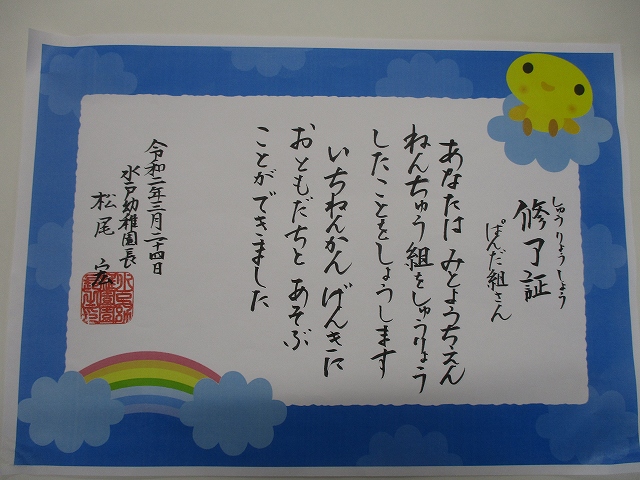 しゅうりょうしょう
修了証
ぱんだ組さん
あなたは みとようちえん
ねんちゅう組をしゅうりょう
したことをしょうします
いちねんかん げんきに
おともだちと あそぶ
ことができました
令和二年三月二十四日
水戸幼稚園長
松尾 宏